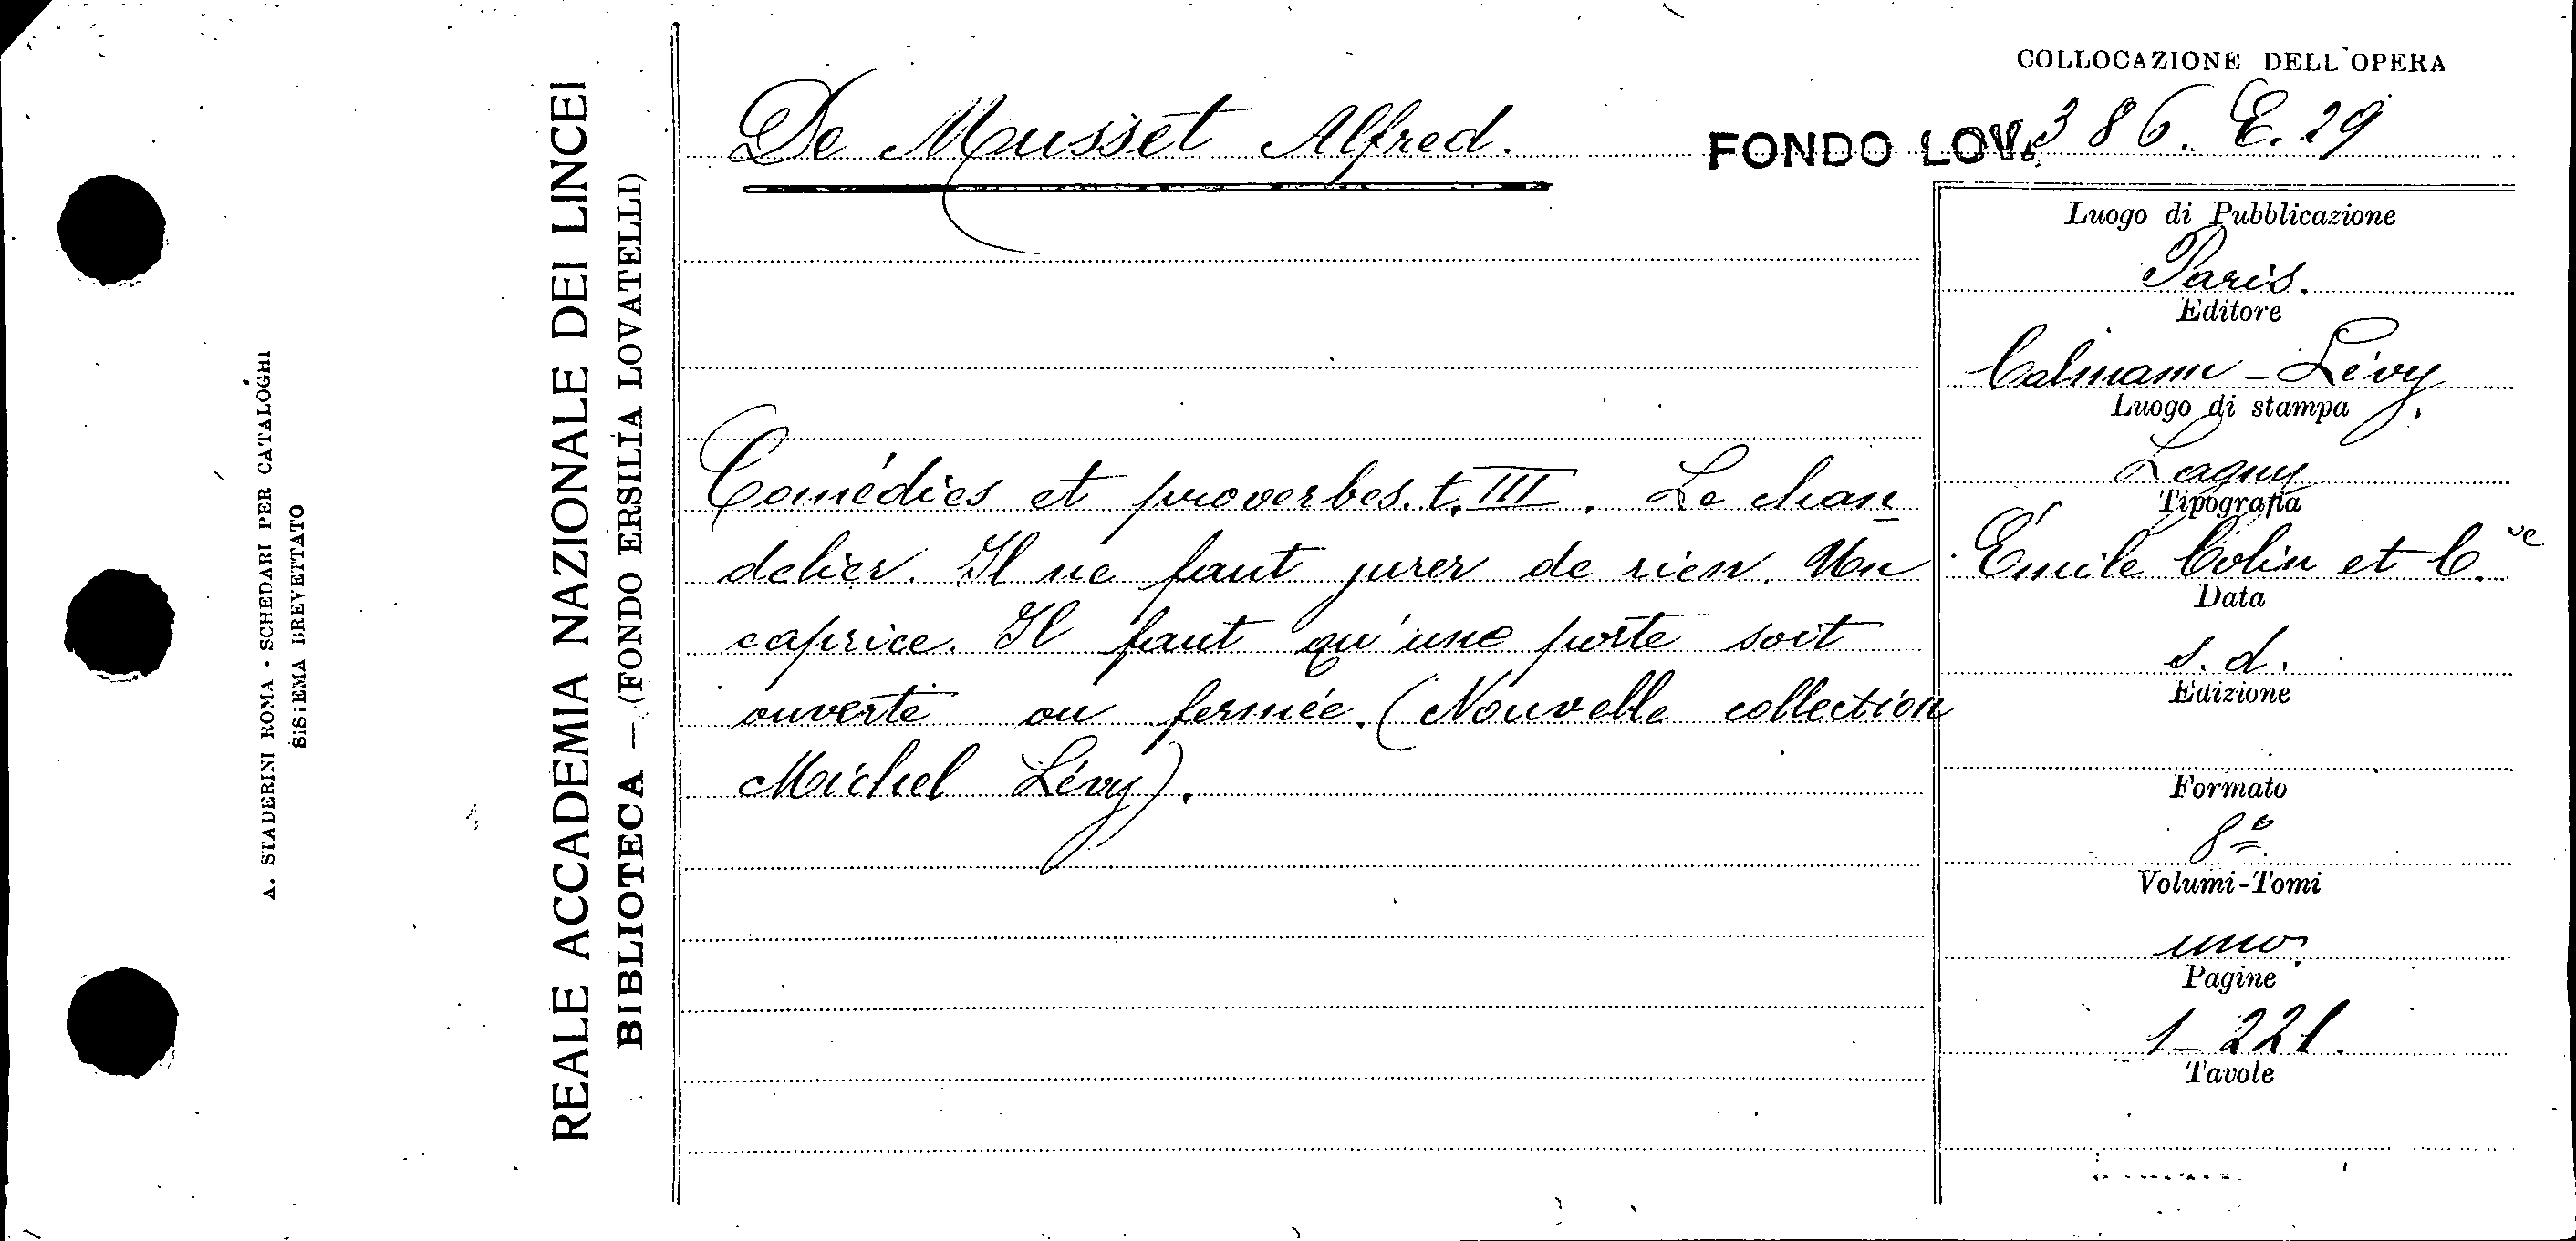 A. STADERINI ROMA - SCHEDARI PER CATALOGHI
SISTEMA BREVETTATO
REALE ACCADEMIA NAZIONALE DEI LINCEI
BIBLIOTECA — (FONDO ERSILIA LOVATELLI)
COLLOCAZIONE DELL'OPERA
De Musset Alfred.
FONDO LOV. 386. E. 29
Comédies et proverbes. t. III. Le chan
delier. Il ne faut jurer de rien. Un
caprice. Il faut qu'une porte soit
ouverte ou fermée. (Nouvelle collection
Michel Lévy).
Luogo di Pubblicazione
Paris.
Editore
Calmann-Lévy.
Luogo di stampa
Lagny
Tipografia
Émile Colin et C.ie
Data
s. d.
Edizione
Formato
8º
Volumi-Tomi
uno.
Pagine
1-221.
Tavole